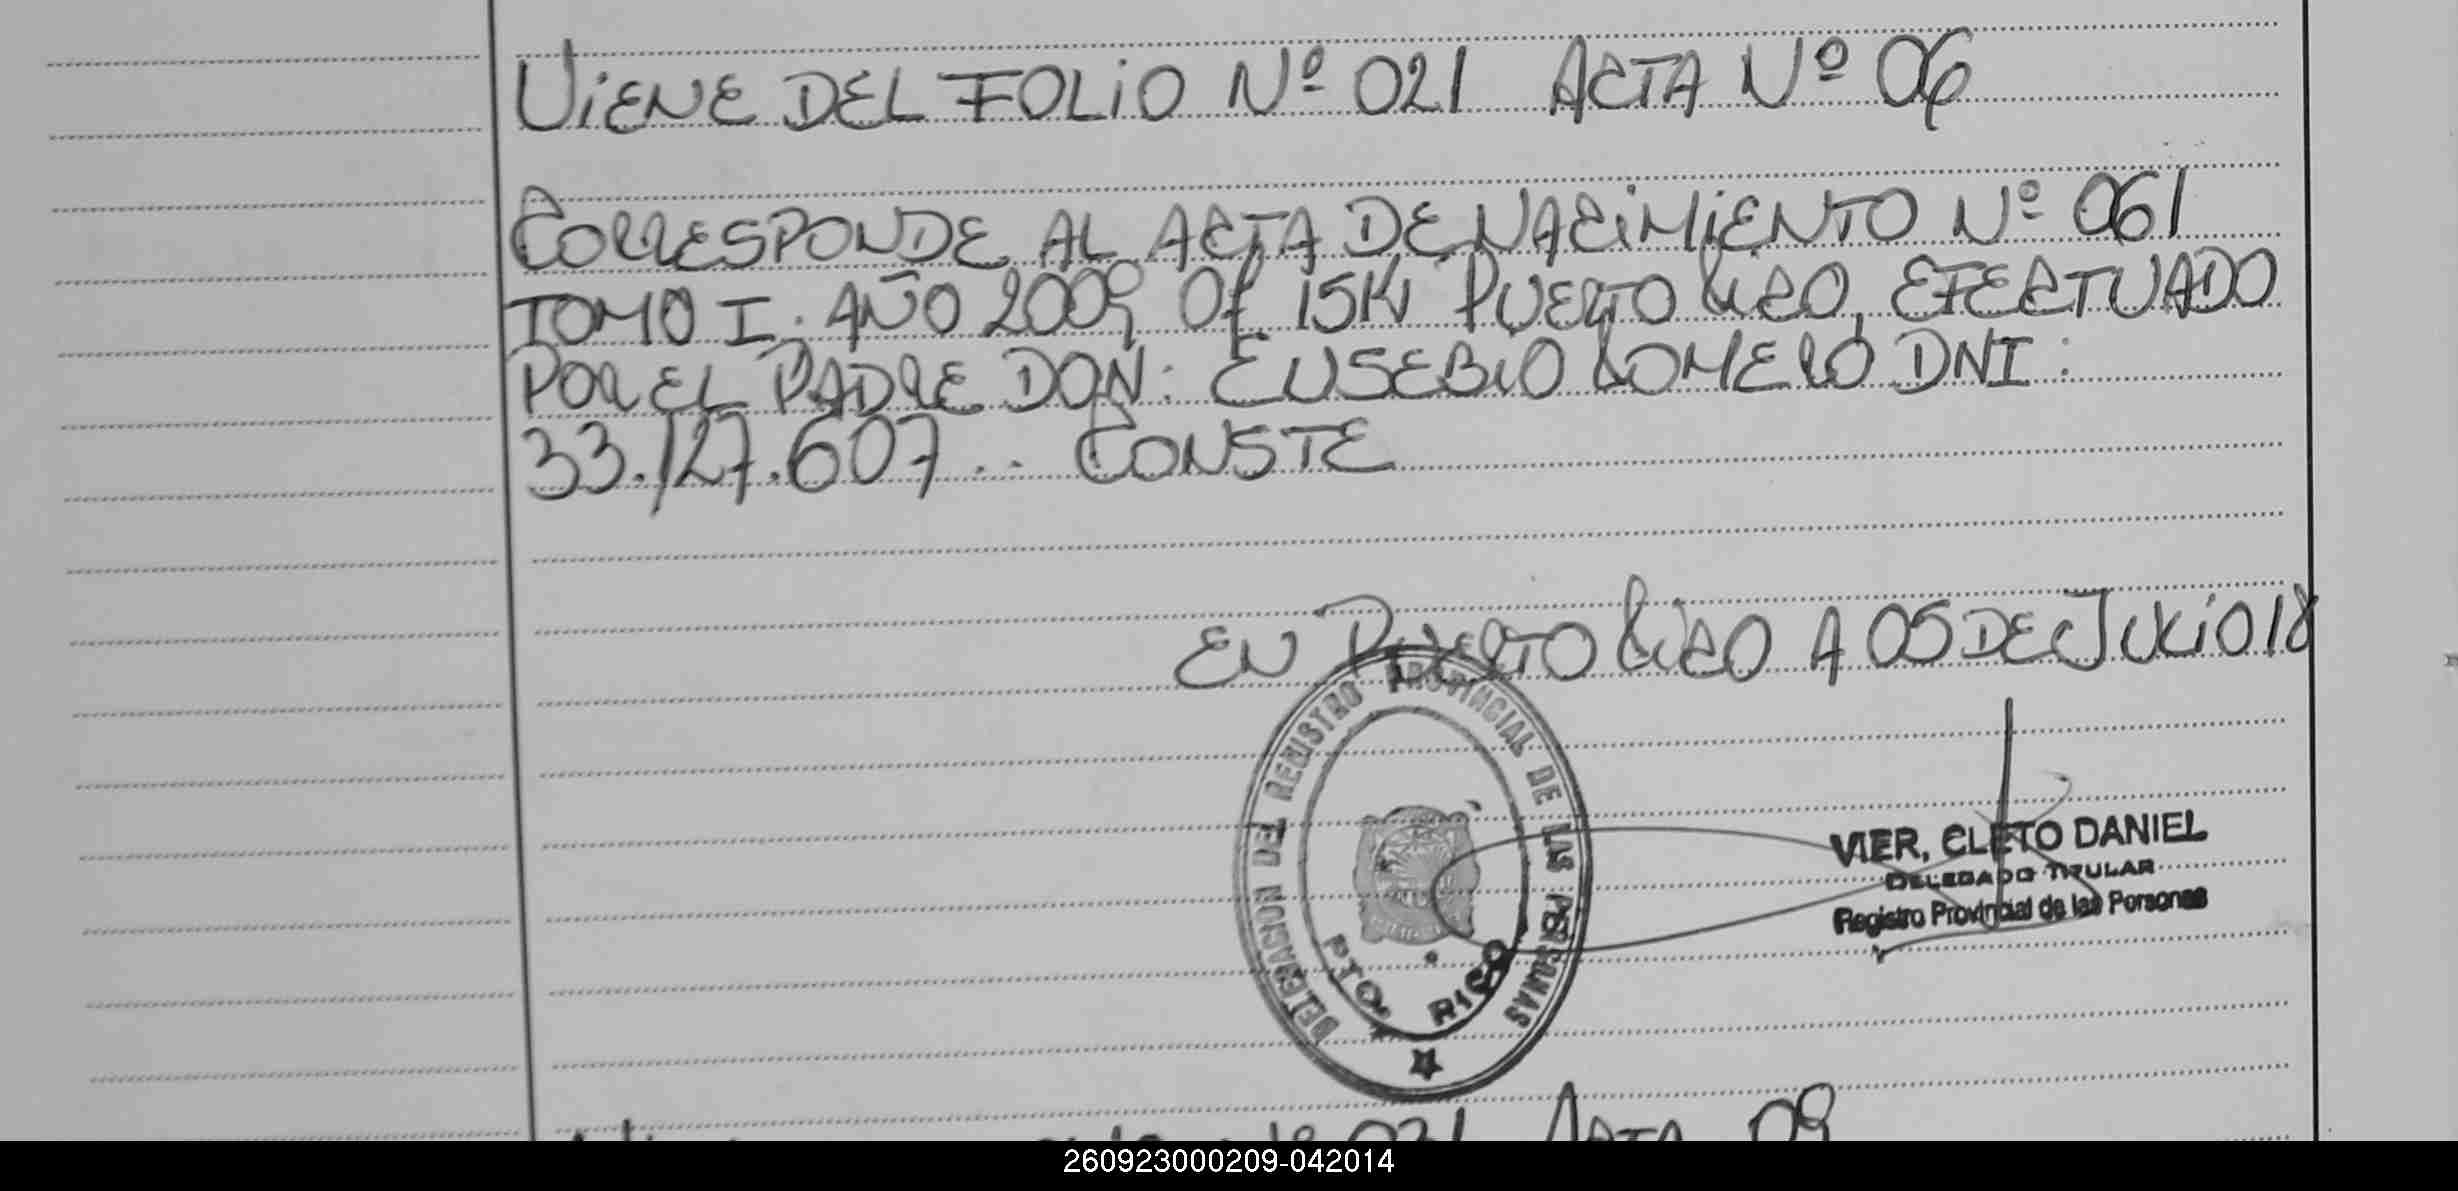 VIENE DEL FOLIO Nº 021 ACTA Nº 06
CORRESPONDE AL ACTA DE NACIMIENTO Nº 061
TOMO I. AÑO 2009 Of 15KI PUERTO RICO, EFECTUADO
POR EL PADRE DON: EUSEBIO ROMERO DNI:
33.127.607.. CONSTE
EN PUERTO RICO A 05 DE JULIO 18
DELEGACION DEL REGISTRO PROVINCIAL DE LAS PERSONAS
PTO. RICO
VIER, CLETO DANIEL
DELEGADO TITULAR
Registro Provincial de las Personas
021 ACTA 09
260923000209-042014